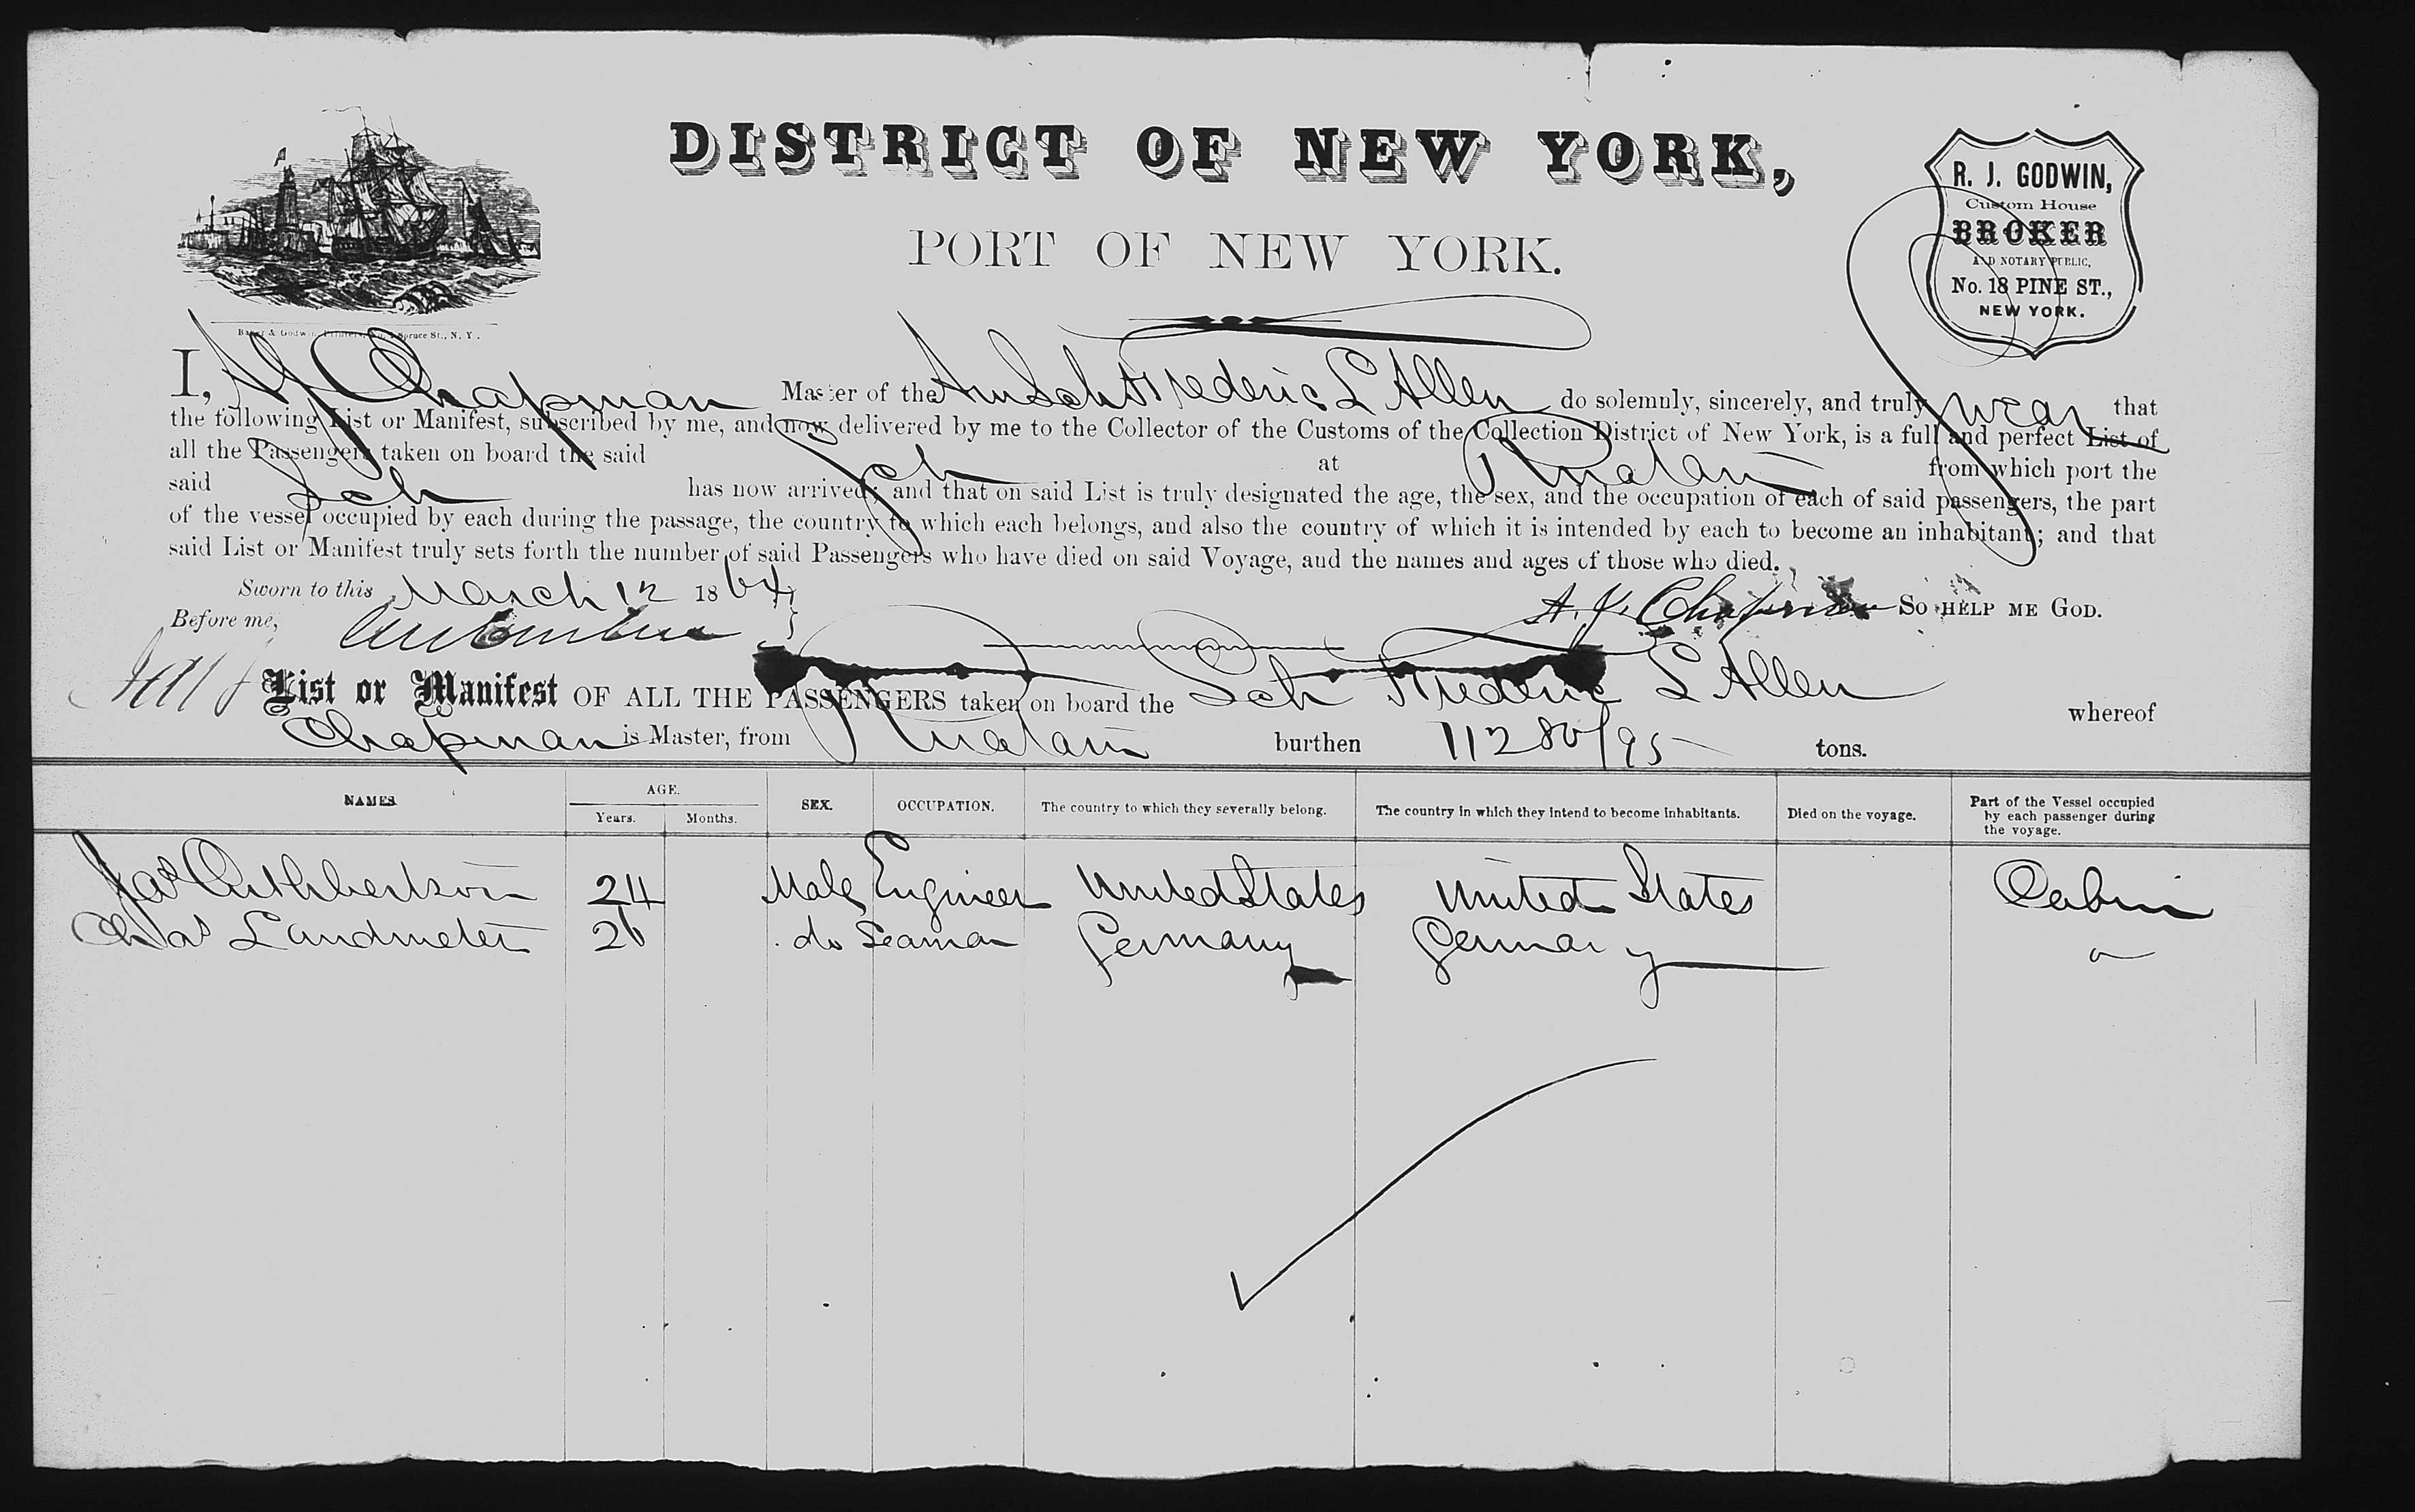 DISTRICT OF NEW YORK,
PORT OF NEW YORK.
R. J. GODWIN,
Custom House
BROKER
AND NOTARY PUBLIC,
No. 18 PINE ST.,
NEW YORK.
Baker & Godwin, Printers, Spruce St., N. Y.
I, A Y Chapman Master of the Am Sch Frederic L Allen do solemnly, sincerely, and truly swear that
the following List or Manifest, subscribed by me, and now delivered by me to the Collector of the Customs of the Collection District of New York, is a full and perfect List of
all the Passengers taken on board the said Sch at Ruatan from which port the
said Sch has now arrived; and that on said List is truly designated the age, the sex, and the occupation of each of said passengers, the part
of the vessel occupied by each during the passage, the country to which each belongs, and also the country of which it is intended by each to become an inhabitant; and that
said List or Manifest truly sets forth the number of said Passengers who have died on said Voyage, and the names and ages of those who died.
Sworn to this March 12 1864
A. Y. Chapman SO HELP ME GOD.
Before me,
List or Manifest OF ALL THE PASSENGERS taken on board the Sch Frederic L Allen whereof
Chapman is Master, from Ruatan burthen 112 80/95 tons.
NAMES AGE. Years. Months. SEX. OCCUPATION. The country to which they severally belong. The country in which they intend to become inhabitants. Died on the voyage. Part of the Vessel occupied by each passenger during the voyage.
Jas Cuthbertson 24 Male Engineer United States United States Cabin
Chas Landmeter 26 do Seaman Germany Germany "